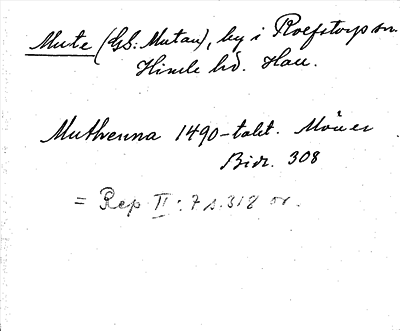 Mute (Gb: Mutau), by i Rolfstorps sn.
Himle hd. Hall.
Muthenna 1490-talet. Möller
Bidr. 308
= Rep II: 7 s. 318 or.